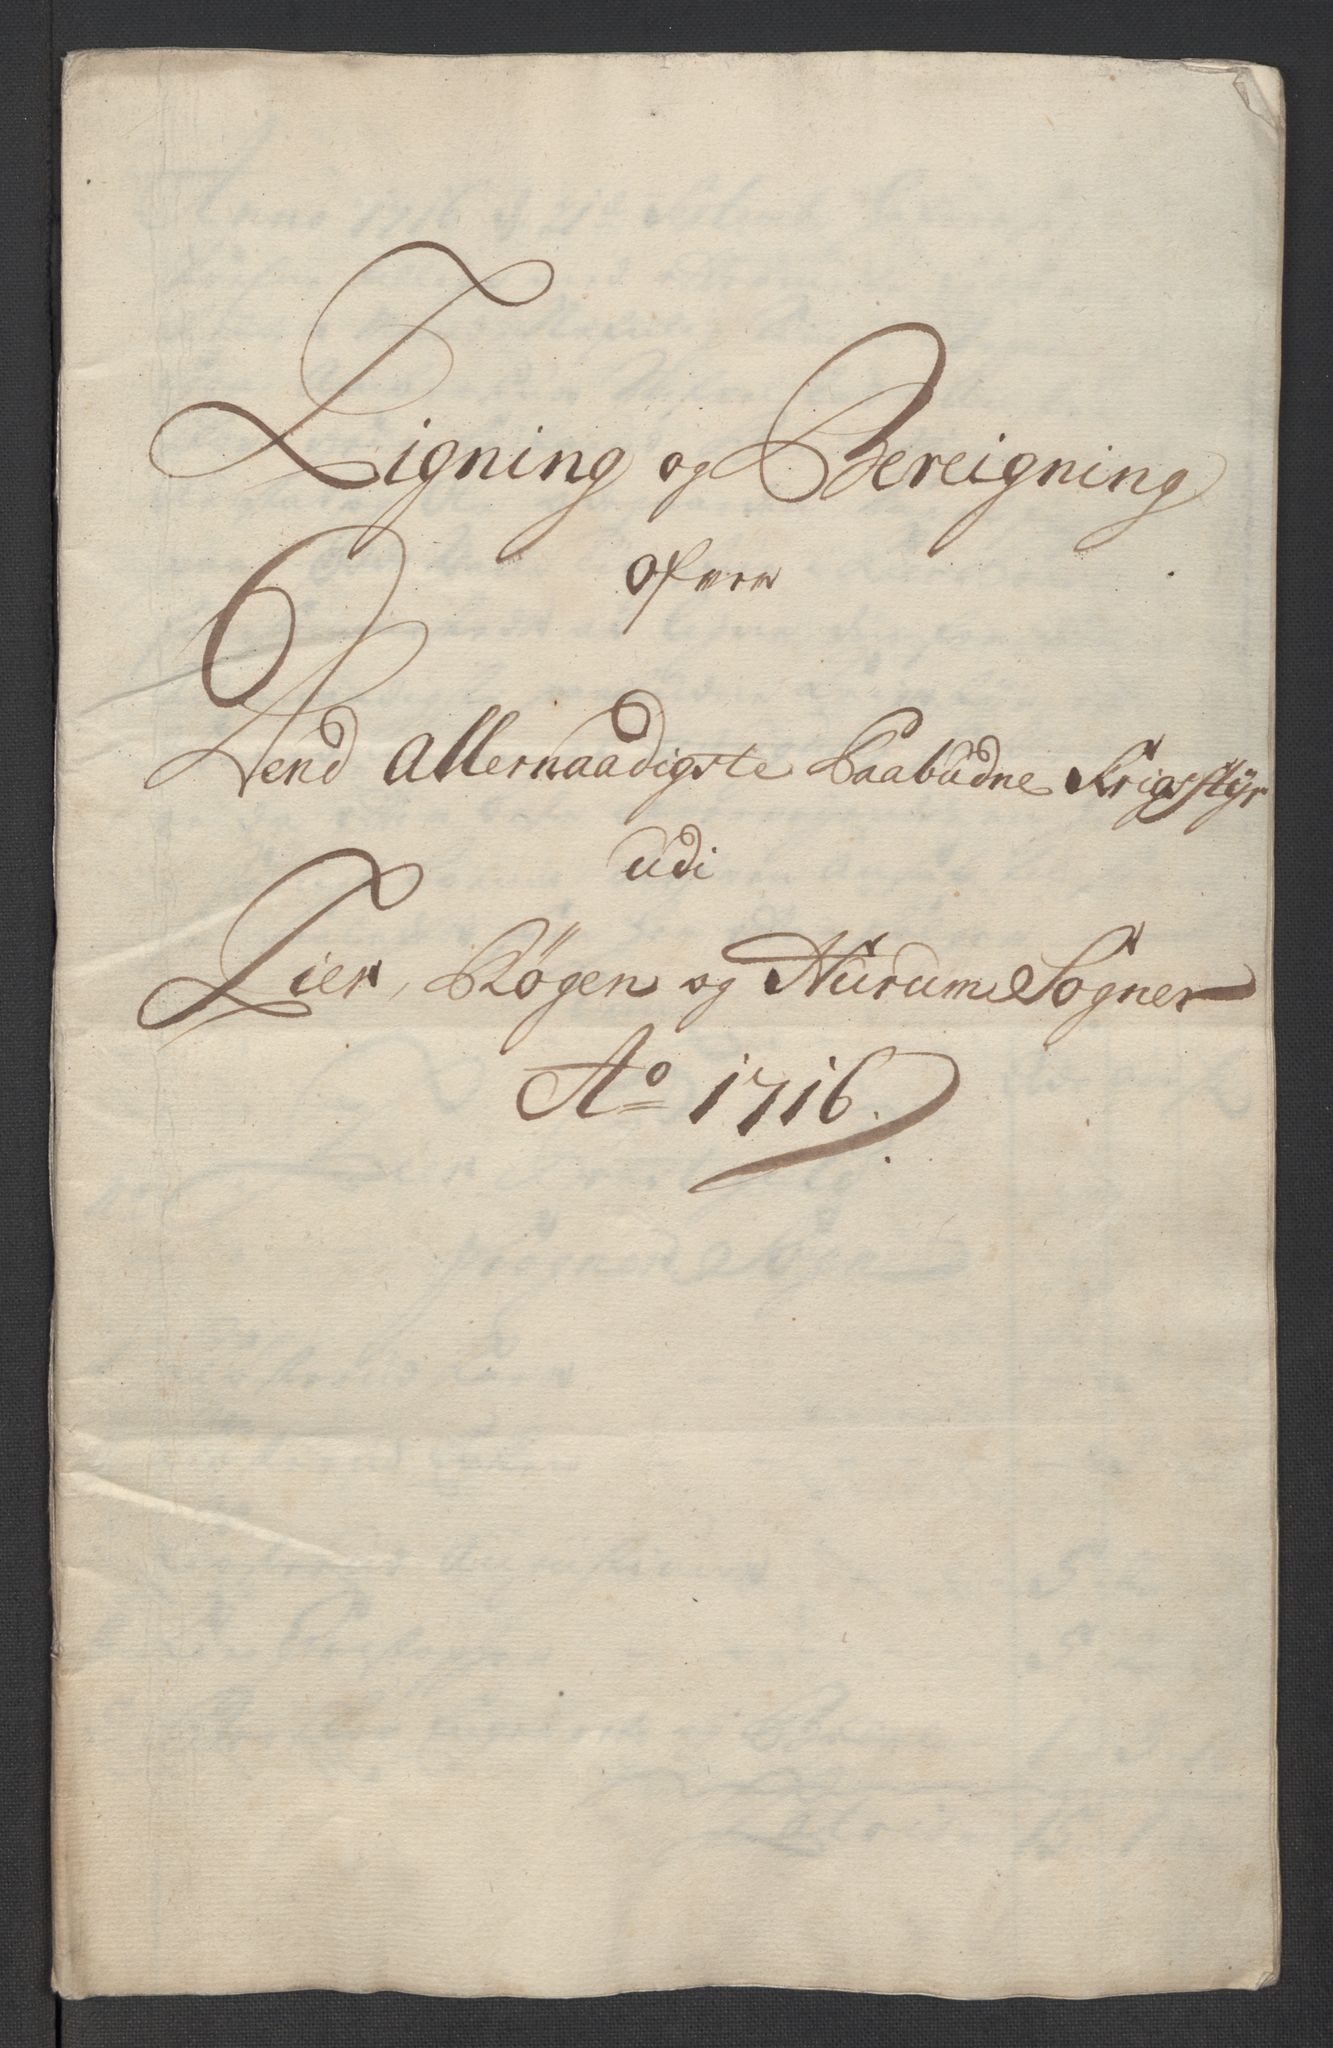 Ligning og Bereigning
ofver
Dend Allernaadigste Paabudne Krigsstyr
udi
Lier, Røgen og Hurum Sogner
Ao 1716.